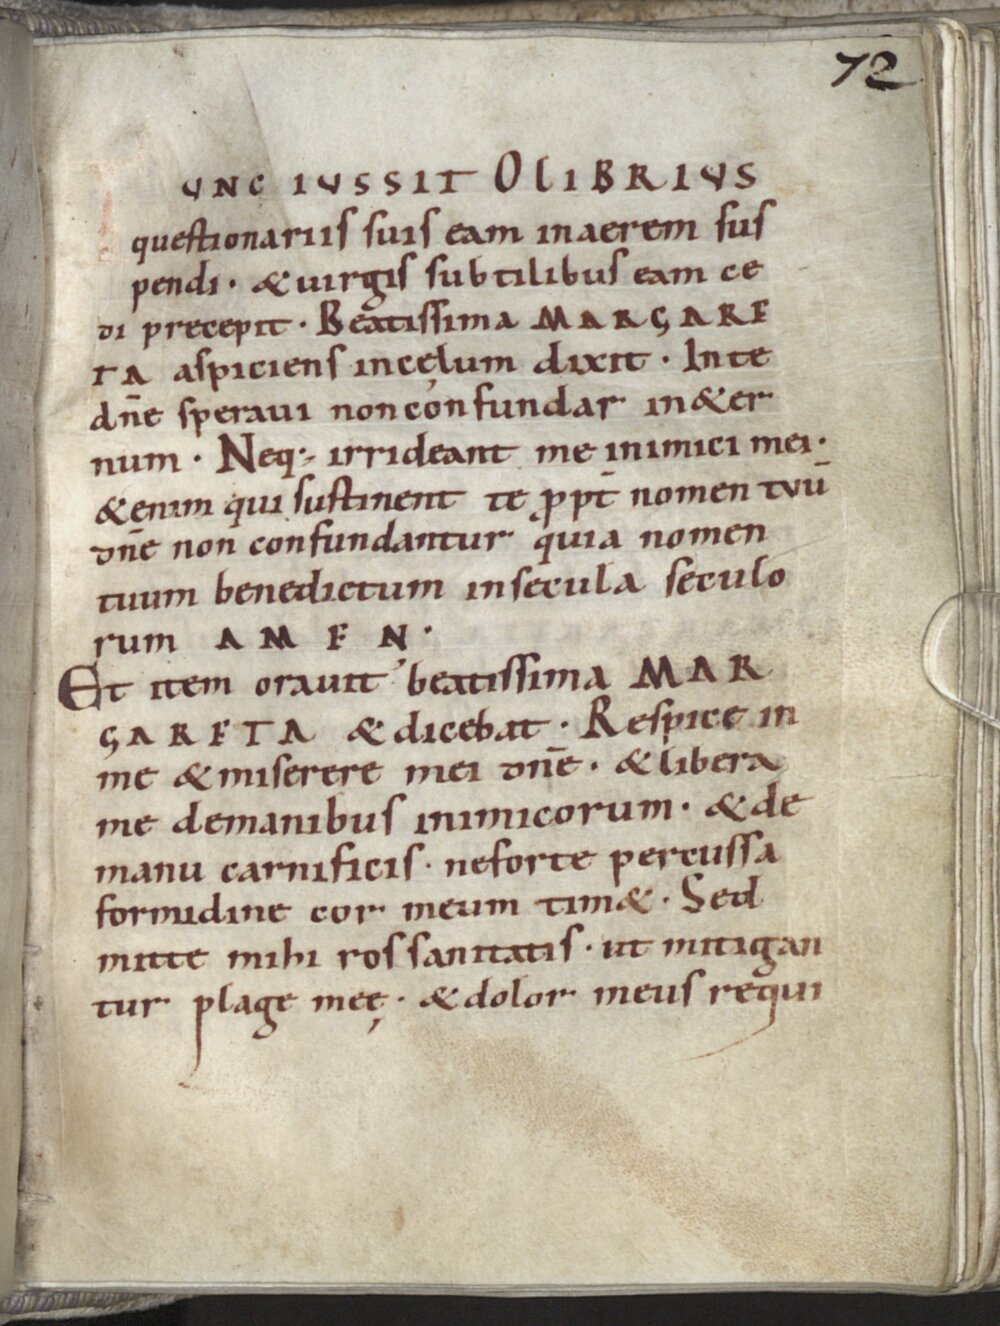 72
UNC IUSSIT OLIBRIUS
questionariis suis eam inaerem sus
pendi · & uirgis subtilibus eam ce
di precepit · Beatissima MARGARE
TA aspiciens incęlum dixit · In te
dn̄e speraui nonconfundar in&er
num · Neq; irrideant me inimici mei ·
&enim qui sustinent te ꝓpt̄ nomen tuū
dn̄e non confundantur quia nomen
tuum benedictum insecula seculo
rum AMEN ·
Et item orauit beatissima MAR
GARETA & dicebat · Respice in
me & miserere mei dn̄e · & libera
me demanibus inimicorum · & de
manu carnificis · neforte percussa
formidine cor meum tim& · Sed
mitte mihi ros sanitatis · ut mitigan
tur plage meę · & dolor meus requi